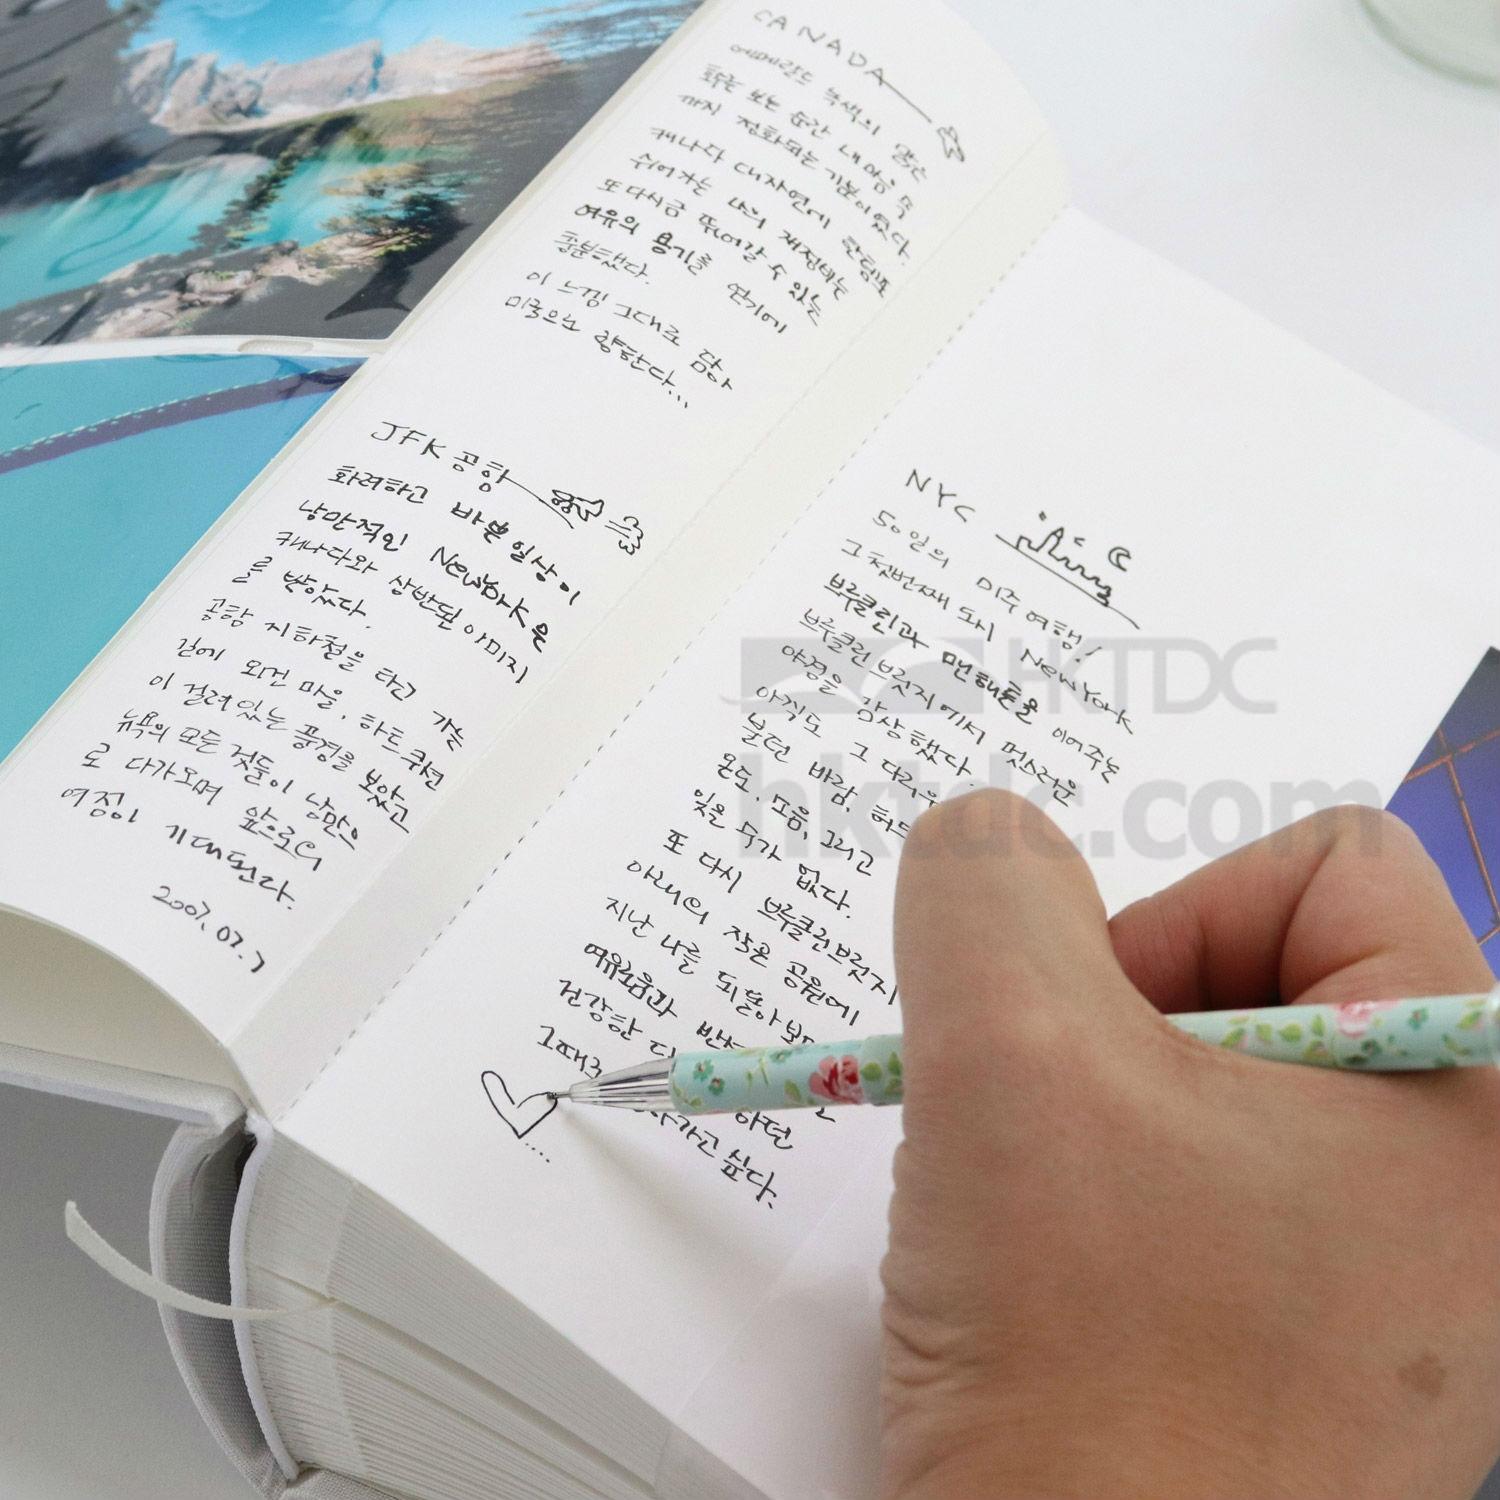 CANADA
에메랄드 녹색의 맑은
호수를 보는 순간 내 마음 속
까지 정화되는 기분이었다.
캐나다 대자연에 한템포
쉬어가는 나의 재정비는
또 다시금 뛰어갈 수 있는
여유의 용기를 얻기에
충분했다.
이 느낌 그대로 담아
미국으로 향한다...
JFK 공항
화려하고 바쁜 일상이
낭만적인 NewYork은
캐나다와 상반된 이미지
를 받았다.
공항 지하철을 타고 가는
길에 외건 마을, 하트 쿠션
이 걸려있는 풍경을 보았고
뉴욕의 모든 것들이 낭만으
로 다가오며 앞으로의
여정이 기대된다.
2007.07.7
NYC
50일의 미주 여행!
그 첫번째 도시 NewYork
브루클린과 맨해튼을 이어주는
브루클린 브릿지에서 멋스러운
야경을 감상했다.
아직도 그 다리위
불던 바람,
온도, 모음, 그리고
잊을 수가 없다.
또 다시 브루클린브릿지
아래의 작은 공원에
지난 나를 되돌아보며
여유로움과
건강한
그때로
하던
돌아가고 싶다.
HKTDC
hktdc.com